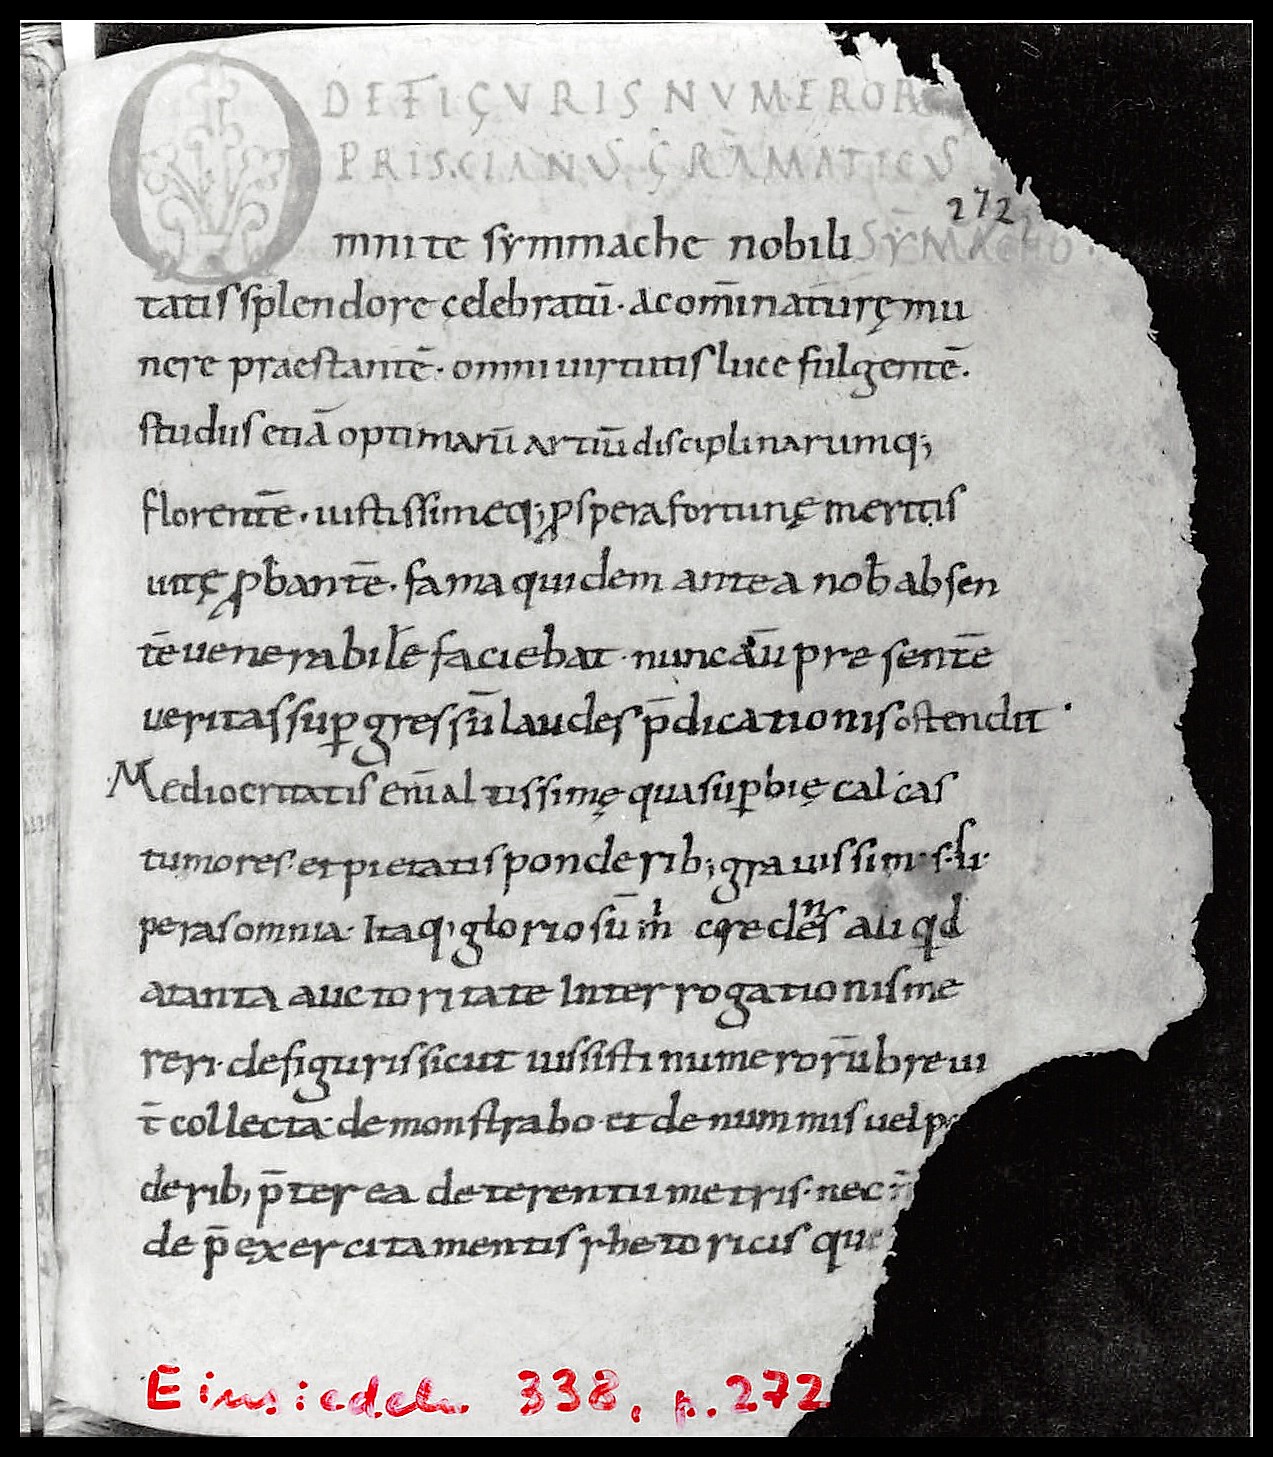 DE FIGURIS NVMEROR
PRISCIANVS GRAMATICVS
272
SYMACHO
Omni te sẏmmache nobili
tatis splendore celebratū· ac om̄i naturę mu
nere praestantē· omni uirtutis luce fulgentē·
studiis etiā optimarū artiū disciplinarumq;
florentē· iustissimeq; ꝓspera fortunę meritis
uitę ꝓbantē· fama quidem antea nob̄ absen
tē uenerabilē faciebat· nunc aū pre sentē
veritas suꝑgressū laudes p̄dicationis ostendit·
Mediocritatis eni͞ altissimę qua suꝑbię calcas
tumores· et pietatis ponderib; grauissim· su·
peras omnia· Itaq; gloriosū m̄ credens aliqd
a tanta auctoritate Interrogationis me
reri· de figuris sicut iussisti numerorū breui
t̄ collecta demonstrabo et de nummis uel po
derib; p̄terea de terentii metris· nec n̄
de p̄exercitamentis rhetoricis que
Einsiedeln 338, p. 272